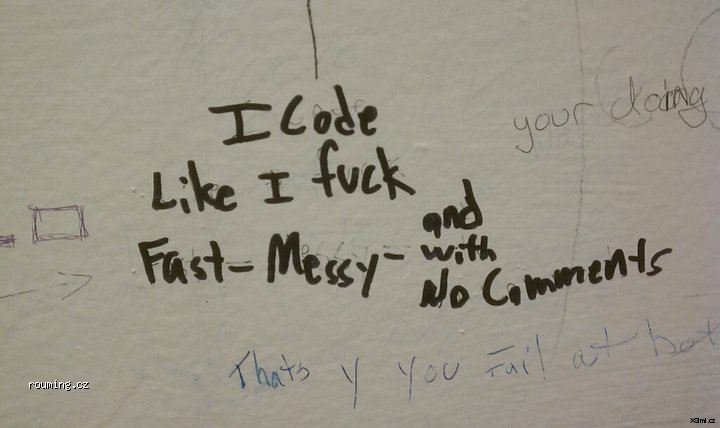 I Code
your doing
Like I fuck
Fast - Messy - and
with
No Comments
Thats y you Fail at bot
rouming.cz